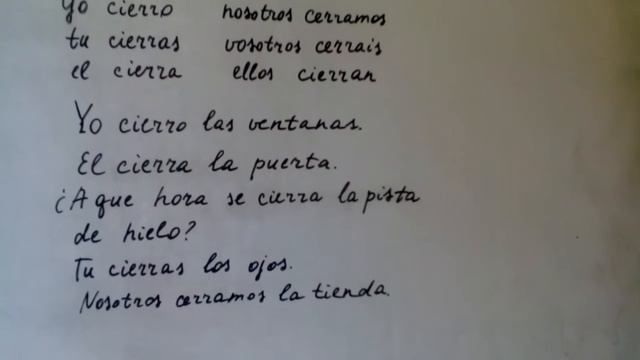 Yo cierro nosotros cerramos
tu cierras vosotros cerrais
el cierra ellos cierran
Yo cierro las ventanas.
El cierra la puerta.
¿A que hora se cierra la pista
de hielo?
Tu cierras los ojos.
Nosotros cerramos la tienda.